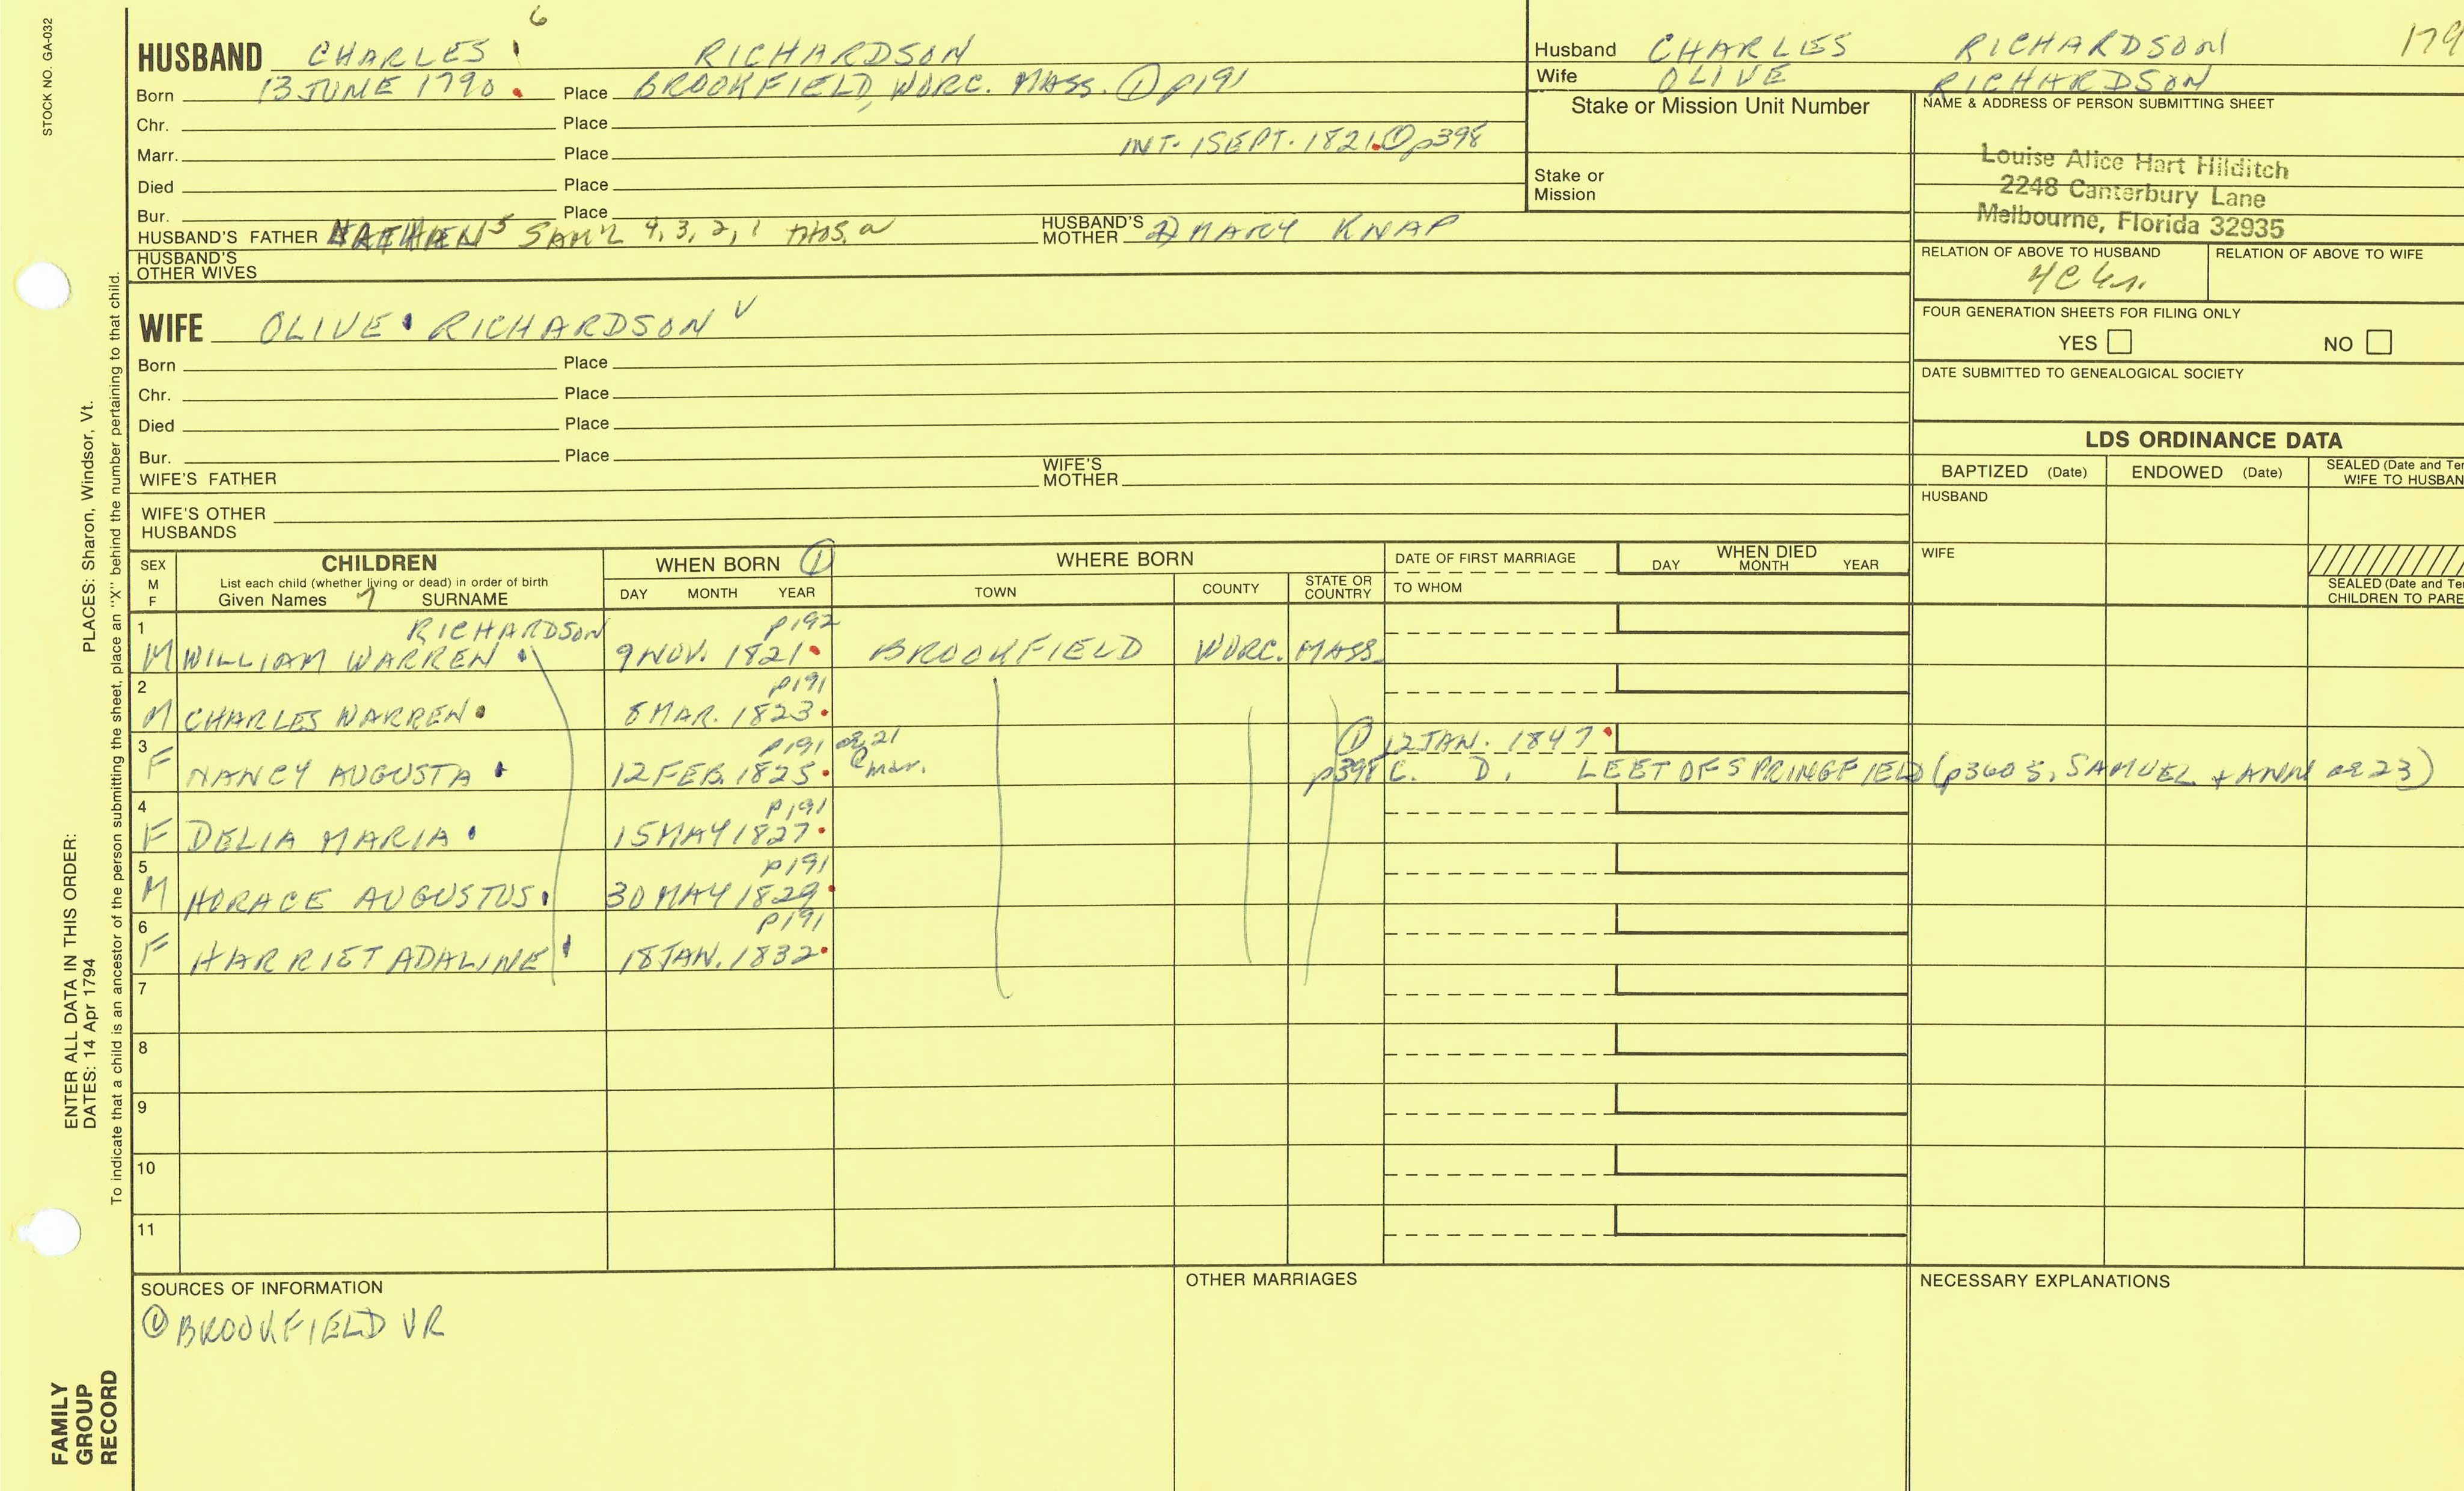 STOCK NO. GA-032
6
HUSBAND CHARLES RICHARDSON
Born 13 JUNE 1790 Place BROOKFIELD, WORC. MASS. ① p191
Chr. Place
Marr. Place INT. 1 SEPT. 1821 ① p398
Died Place
Bur. Place
HUSBAND'S FATHER 5 SAM'L 4, 3, 2, 1 HUSBAND'S MOTHER MARY KNAP
HUSBAND'S OTHER WIVES
WIFE OLIVE RICHARDSON
Born Place
Chr. Place
Died Place
Bur. Place
WIFE'S FATHER WIFE'S MOTHER
WIFE'S OTHER HUSBANDS
Husband CHARLES RICHARDSON 179
Wife OLIVE RICHARDSON
Stake or Mission Unit Number
Stake or Mission
NAME & ADDRESS OF PERSON SUBMITTING SHEET
Louise Alice Hart Hilditch
2248 Canterbury Lane
Melbourne, Florida 32935
RELATION OF ABOVE TO HUSBAND RELATION OF ABOVE TO WIFE
FOUR GENERATION SHEETS FOR FILING ONLY
YES NO
DATE SUBMITTED TO GENEALOGICAL SOCIETY
LDS ORDINANCE DATA
BAPTIZED (Date) ENDOWED (Date) SEALED (Date and Te
WIFE TO HUSBAN
HUSBAND
WIFE
SEALED (Date and Te
CHILDREN TO PARE
SEX M F
CHILDREN
List each child (whether living or dead) in order of birth
Given Names 7 SURNAME
WHEN BORN ①
DAY MONTH YEAR
WHERE BORN
TOWN COUNTY STATE OR COUNTRY
DATE OF FIRST MARRIAGE
TO WHOM
WHEN DIED
DAY MONTH YEAR
1 RICHARDSON p192
M WILLIAM WARREN 9 NOV. 1821 BROOKFIELD WORC. MASS.
2 p191
M CHARLES WARREN 8 MAR. 1823
3 p191 ae 21 ① 12 JAN. 1847
F NANCY AUGUSTA 12 FEB. 1825 @ mar. p398 C. D. LEET OF SPRINGFIELD (p360 S. SAMUEL + ANN ae 23)
4 p191
F DELIA MARIA 15 MAY 1827
5 p191
M HORACE AUGUSTUS 30 MAY 1829
6 p191
F HARRIET ADALINE 18 JAN. 1832
7
8
9
10
11
SOURCES OF INFORMATION
① BROOKFIELD VR
OTHER MARRIAGES
NECESSARY EXPLANATIONS
PLACES: Sharon, Windsor, Vt.
To indicate that a child is an ancestor of the person submitting the sheet, place an "X" behind the number pertaining to that child.
ENTER ALL DATA IN THIS ORDER:
DATES: 14 Apr 1794
FAMILY
GROUP
RECORD